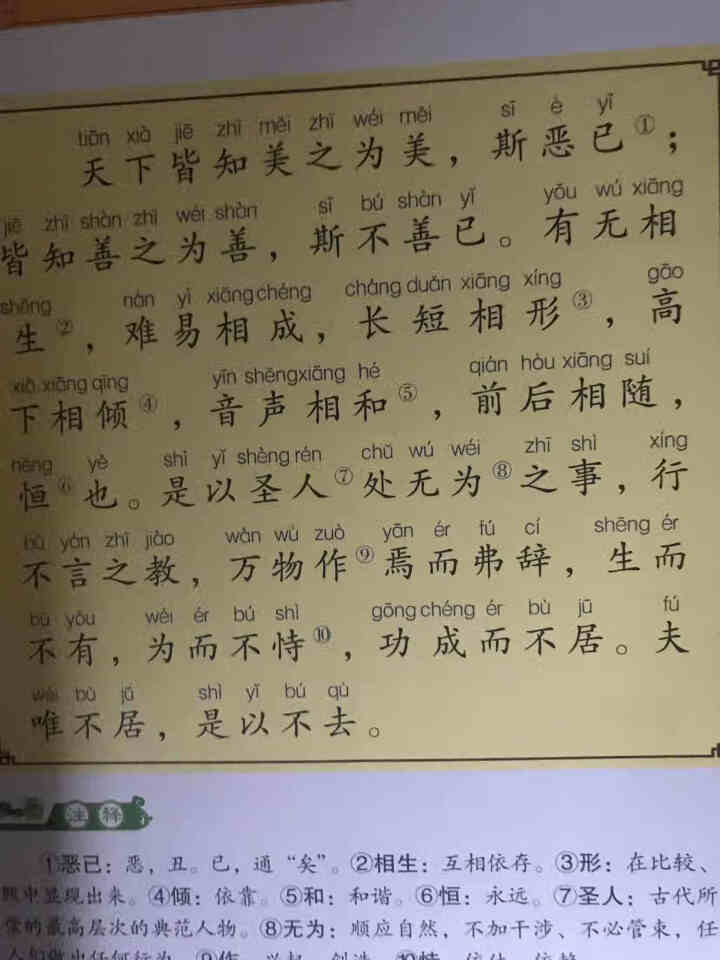 tiān xià jiē zhī měi zhī wéi měi sī è yǐ
天下皆知美之为美，斯恶已①；
jiē zhī shàn zhī wéi shàn sī bú shàn yǐ yǒu wú xiāng
皆知善之为善，斯不善已。有无相
shēng nán yì xiāng chéng cháng duǎn xiāng xíng gāo
生②，难易相成，长短相形③，高
xià xiāng qīng yīn shēng xiāng hé qián hòu xiāng suí
下相倾④，音声相和⑤，前后相随，
héng yě shì yǐ shèng rén chǔ wú wéi zhī shì xíng
恒⑥也。是以圣人⑦处无为⑧之事，行
bù yán zhī jiào wàn wù zuò yān ér fú cí shēng ér
不言之教，万物作⑨焉而弗辞，生而
bù yǒu wéi ér bú shì gōng chéng ér bù jū fú
不有，为而不恃⑩，功成而不居。夫
wéi bù jū shì yǐ bú qù
唯不居，是以不去。
注释
①恶已：恶，丑。已，通“矣”。②相生：互相依存。③形：在比较、
照中显现出来。④倾：依靠。⑤和：和谐。⑥恒：永远。⑦圣人：古代所
的最高层次的典范人物。⑧无为：顺应自然，不加干涉、不必管束，任
人们做出任何行为。⑨作：兴起、创造。⑩恃：依仗、依赖